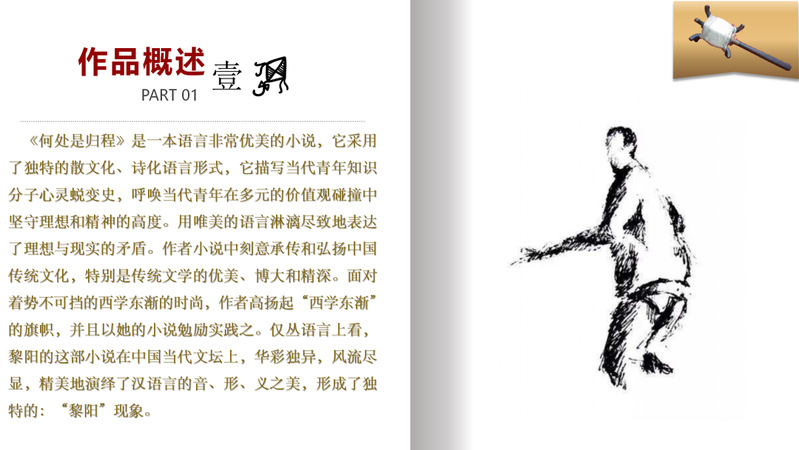 作品概述
壹
PART 01
《何处是归程》是一本语言非常优美的小说，它采用
了独特的散文化、诗化语言形式，它描写当代青年知识
分子心灵蜕变史，呼唤当代青年在多元的价值观碰撞中
坚守理想和精神的高度。用唯美的语言淋漓尽致地表达
了理想与现实的矛盾。作者小说中刻意承传和弘扬中国
传统文化，特别是传统文学的优美、博大和精深。面对
着势不可挡的西学东渐的时尚，作者高扬起“西学东渐”
的旗帜，并且以她的小说勉励实践之。仅丛语言上看，
黎阳的这部小说在中国当代文坛上，华彩独异，风流尽
显，精美地演绎了汉语言的音、形、义之美，形成了独
特的：“黎阳”现象。